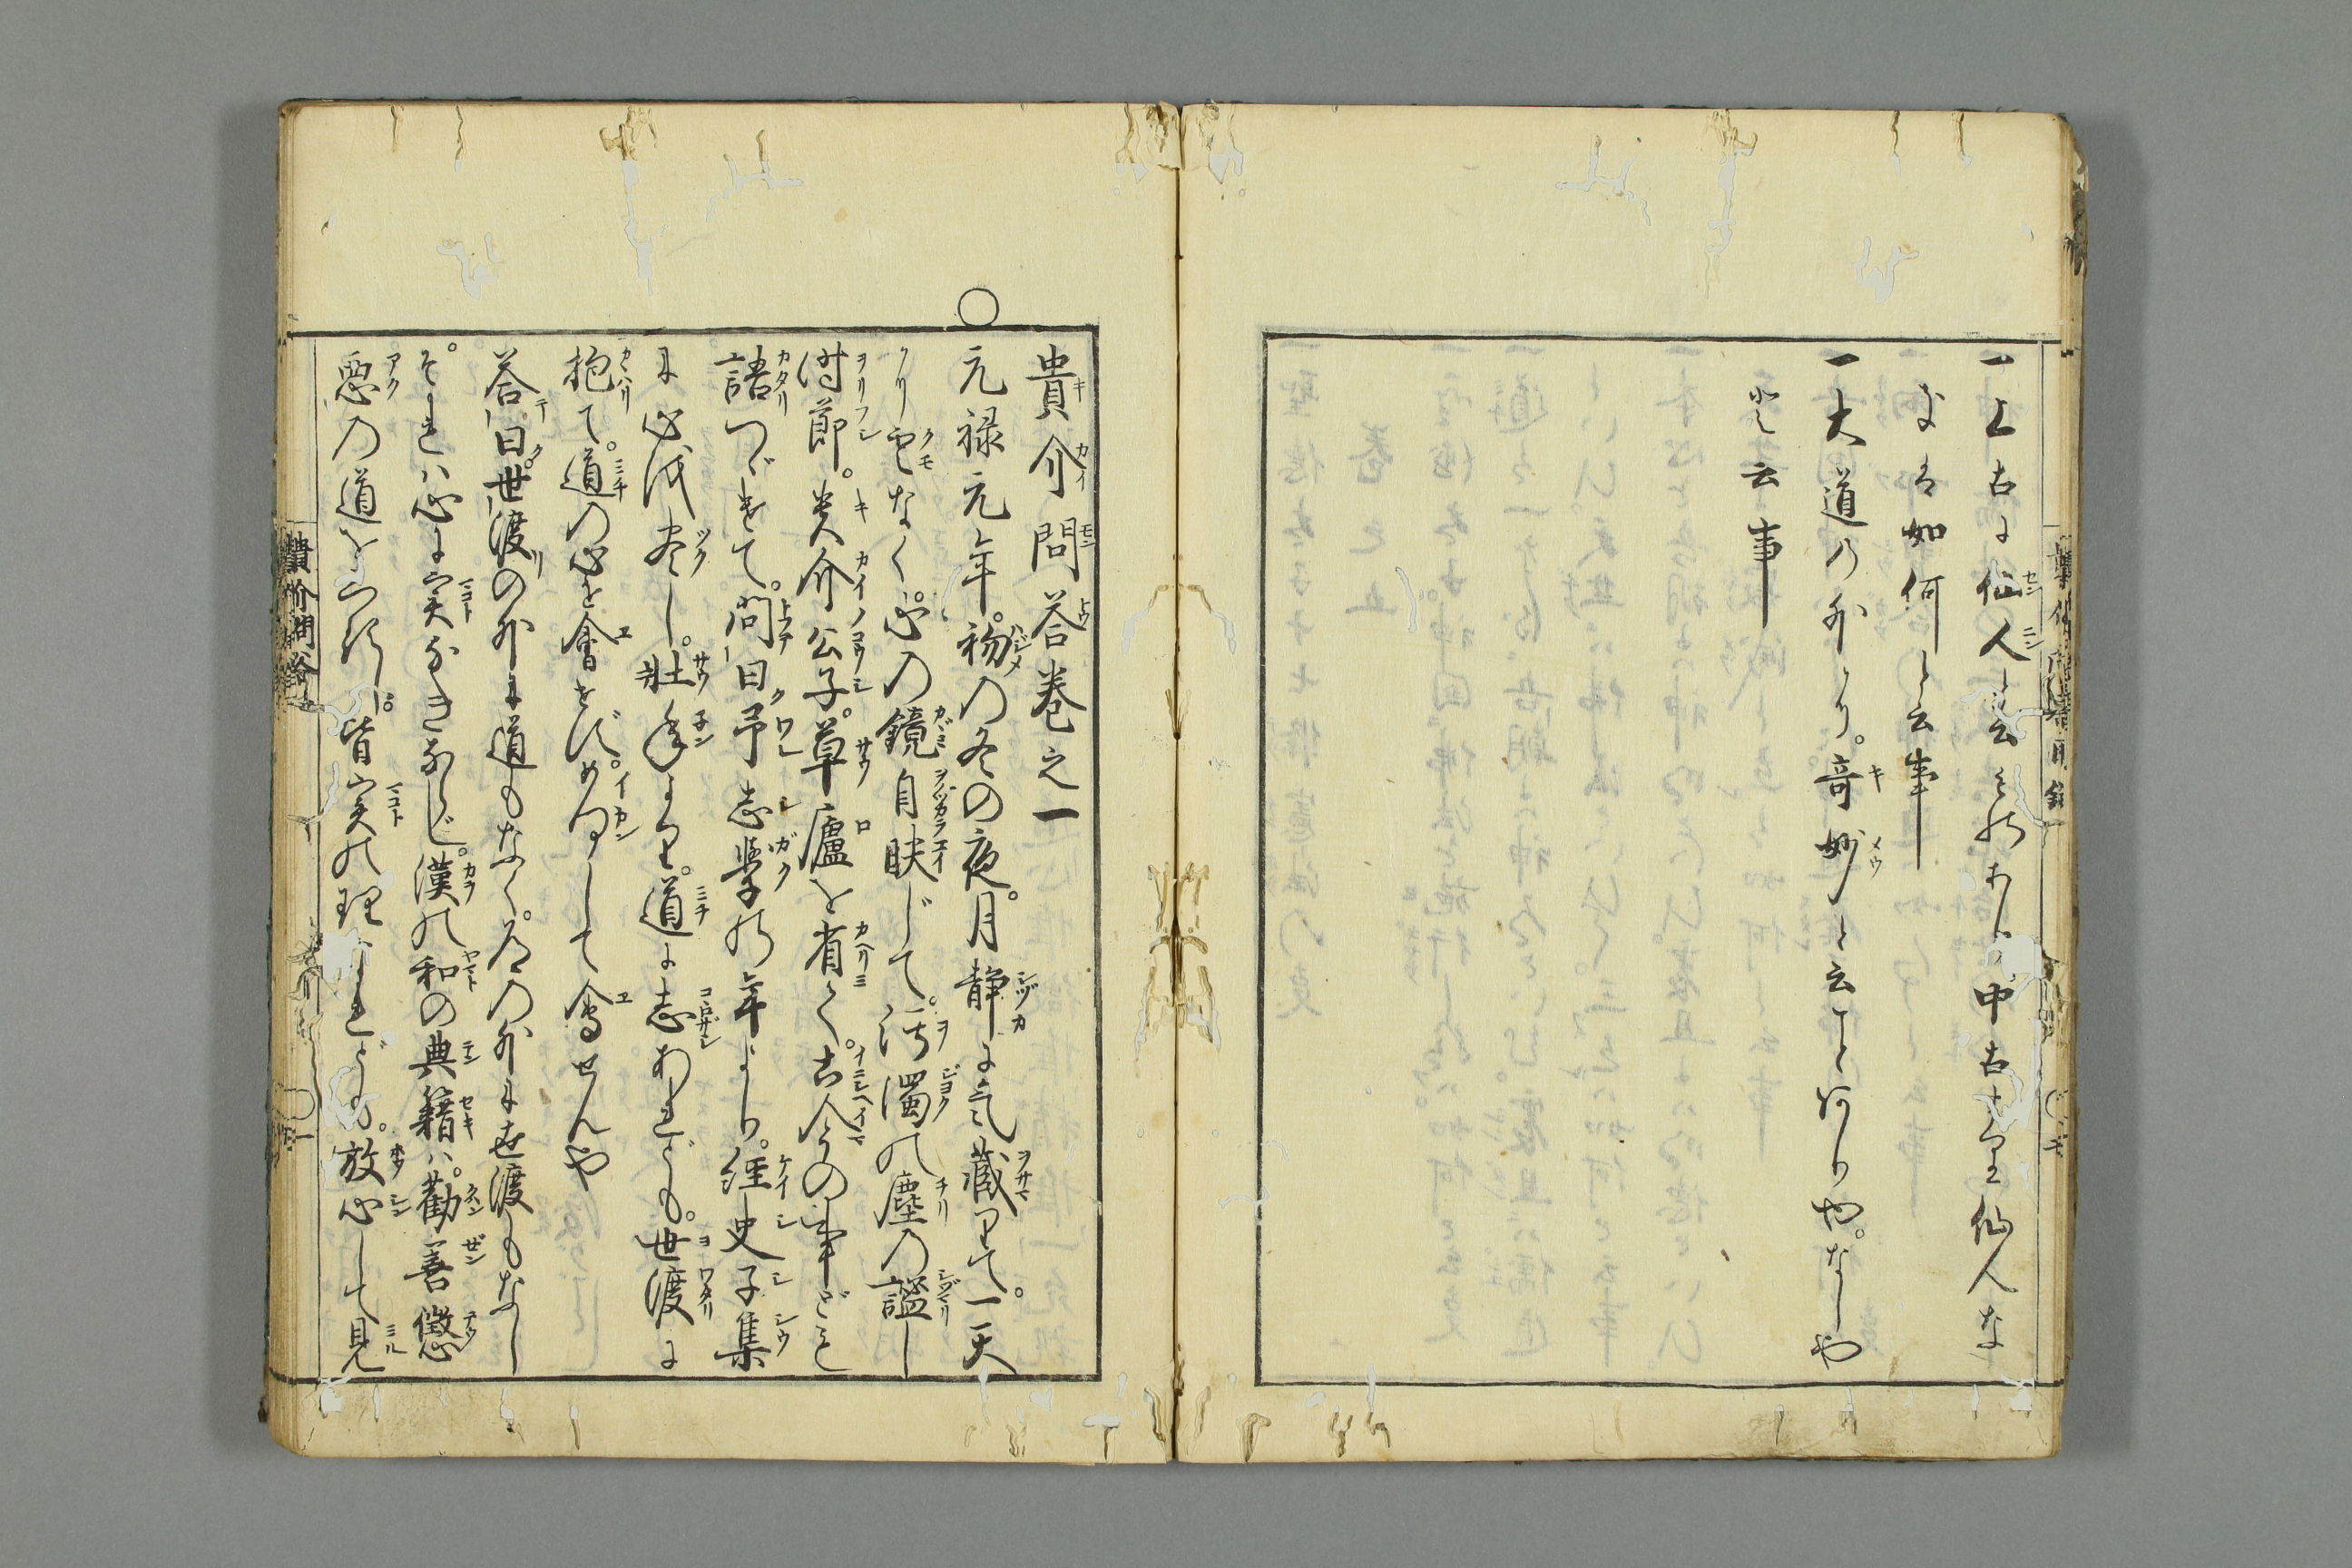 一上古に仙人と云ものあり中古より仙人な
きは如何と云事
一大道の外より。奇妙と云ことありや。なしや
と云事
貴介問答巻之一
元禄元年。初の冬の夜。月静に気蔵りて。一天
雲なく。心の鏡自映じて。汚濁の塵の謐し
時節。貴介公子。草廬を省く。古今の事ども
語つゞけて。問曰予志学の年より。経史子集
に心を尽し。壮年より。道に志あれども。世渡に
抱て。道の心を會せず。如何して會せんや
答曰世渡の外に道もなく。道の外に世渡もなし
それは心に実なき故なり。漢の和の典籍は。勧善懲
悪の道を。皆実の理なれども。放心して見
貴介問答